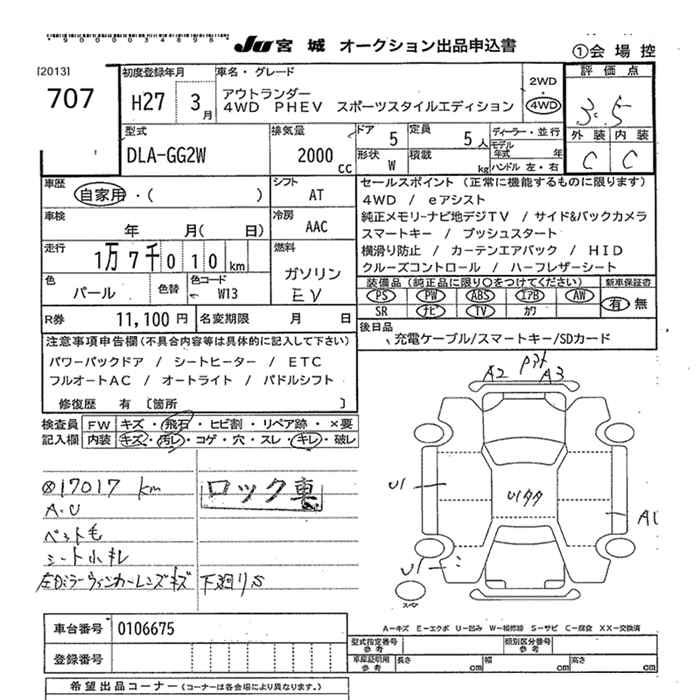 *900034898*
JU宮城 オークション出品申込書
①会場控
[2013]
707
初度登録年月
H27 3月
車名・グレード
アウトランダー
4WD PHEV スポーツスタイルエディション
2WD
4WD
評価点
3.5
外装 内装
C C
型式
DLA-GG2W
排気量
2000 cc
ドア 5
定員 5人
形状 W
積載 kg
ディーラー・並行
モデル年式 年
ハンドル 左・右
車歴
自家用・( )
シフト
AT
車検
年 月(日)
冷房
AAC
走行
1万7千010km
燃料
ガソリン
EV
色
パール
色替
色コード
W13
R券 11,100円
名変期限 月 日
セールスポイント (正常に機能するものに限ります)
4WD / eアシスト
純正メモリーナビ地デジTV / サイド&バックカメラ
スマートキー / プッシュスタート
横滑り防止 / カーテンエアバック / HID
クルーズコントロール / ハーフレザーシート
装備品(純正品に限り○をつけてください)
新車保証書
PS PW ABS エアB AW
SR ナビ TV カワ
有 無
後日品
充電ケーブル/スマートキー/SDカード
注意事項申告欄(不具合内容等は具体的に記入して下さい)
パワーバックドア / シートヒーター / ETC
フルオートAC / オートライト / パドルシフト
修復歴 有 [箇所 ]
検査員記入欄
FW キズ・飛石・ヒビ割・リペア跡・×要
内装 キズ・汚レ・コゲ・穴・スレ・キレ・破レ
⊗17017km
ロック車
A.U
ペット毛
シート小キレ
左Dミラーウィンカーレンズキズ 下廻りS
A2 A3
U1
U1タタ
A1
U1
スペア
A-キズ E-エクボ U-凹み W-補修跡 S-サビ C-腐食 XX-交換済
車台番号 0106675
登録番号
型式指定番号
参考
類別区分番号
参考
車庫証明用参考
長さ cm
幅 cm
高さ cm
希望出品コーナー(コーナーは各会場により異なります。)